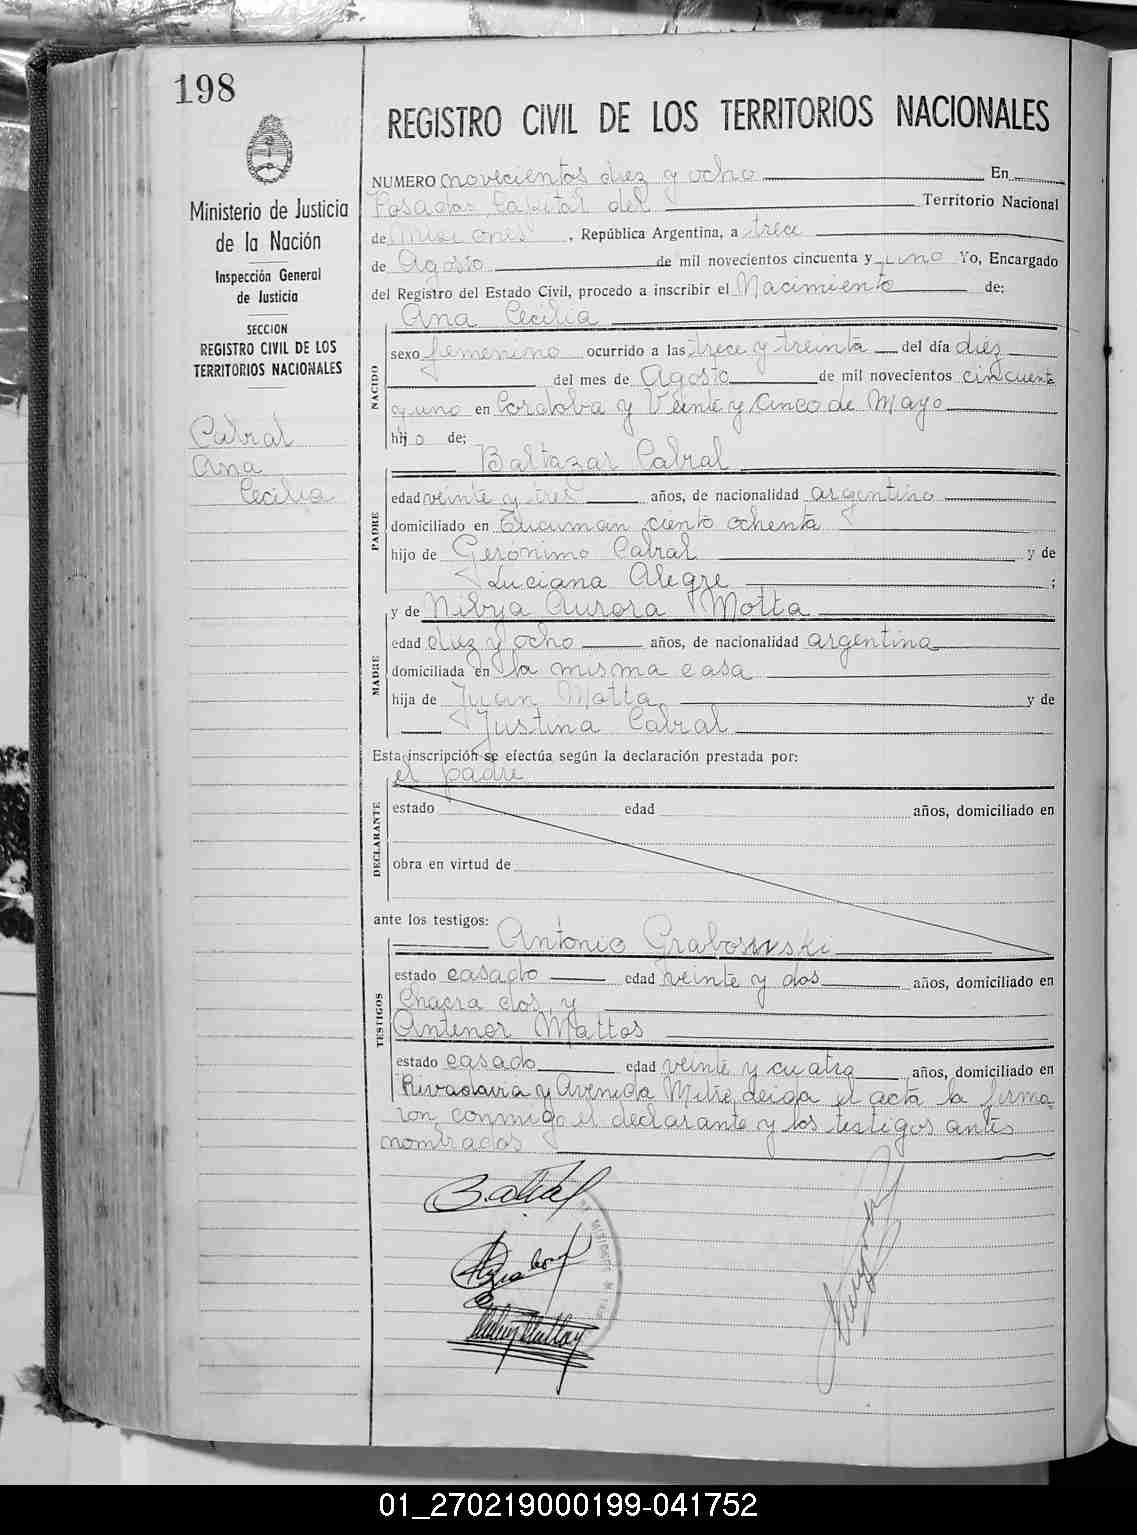 198
Ministerio de Justicia
de la Nación
Inspección General
de Justicia
SECCION
REGISTRO CIVIL DE LOS
TERRITORIOS NACIONALES
Cabral
Ana
Cecilia
REGISTRO CIVIL DE LOS TERRITORIOS NACIONALES
NUMERO novecientos diez y ocho En
Posadas Capital del Territorio Nacional
de Misiones, República Argentina, a trece
de Agosto de mil novecientos cincuenta y uno Yo, Encargado
del Registro del Estado Civil, procedo a inscribir el Nacimiento de:
Ana Cecilia
NACIDO
sexo femenino ocurrido a las trece y treinta del día diez
del mes de Agosto de mil novecientos cincuenta
y uno en Cordoba y Veinte y Cinco de Mayo
hijo de;
Baltazar Cabral
PADRE
edad veinte y tres años, de nacionalidad argentino
domiciliado en Tucuman ciento ochenta
hijo de Gerónimo Cabral y de
Luciana Alegre ;
y de Nibya Aurora Motta
MADRE
edad diez y ocho años, de nacionalidad argentina
domiciliada en la misma casa
hija de Juan Motta y de
Justina Cabral
Esta inscripción se efectúa según la declaración prestada por:
el padre
DECLARANTE
estado edad años, domiciliado en
obra en virtud de
ante los testigos:
Antonio Grabowski
TESTIGOS
estado casado edad veinte y dos años, domiciliado en
Chacra dos y
Antenor Mattos
estado casado edad veinte y cuatro años, domiciliado en
Rivadavia y Avenida Mitre leida el acta la firma
ron conmigo el declarante y los testigos antes
nombrados
B. Cabral
01_270219000199-041752